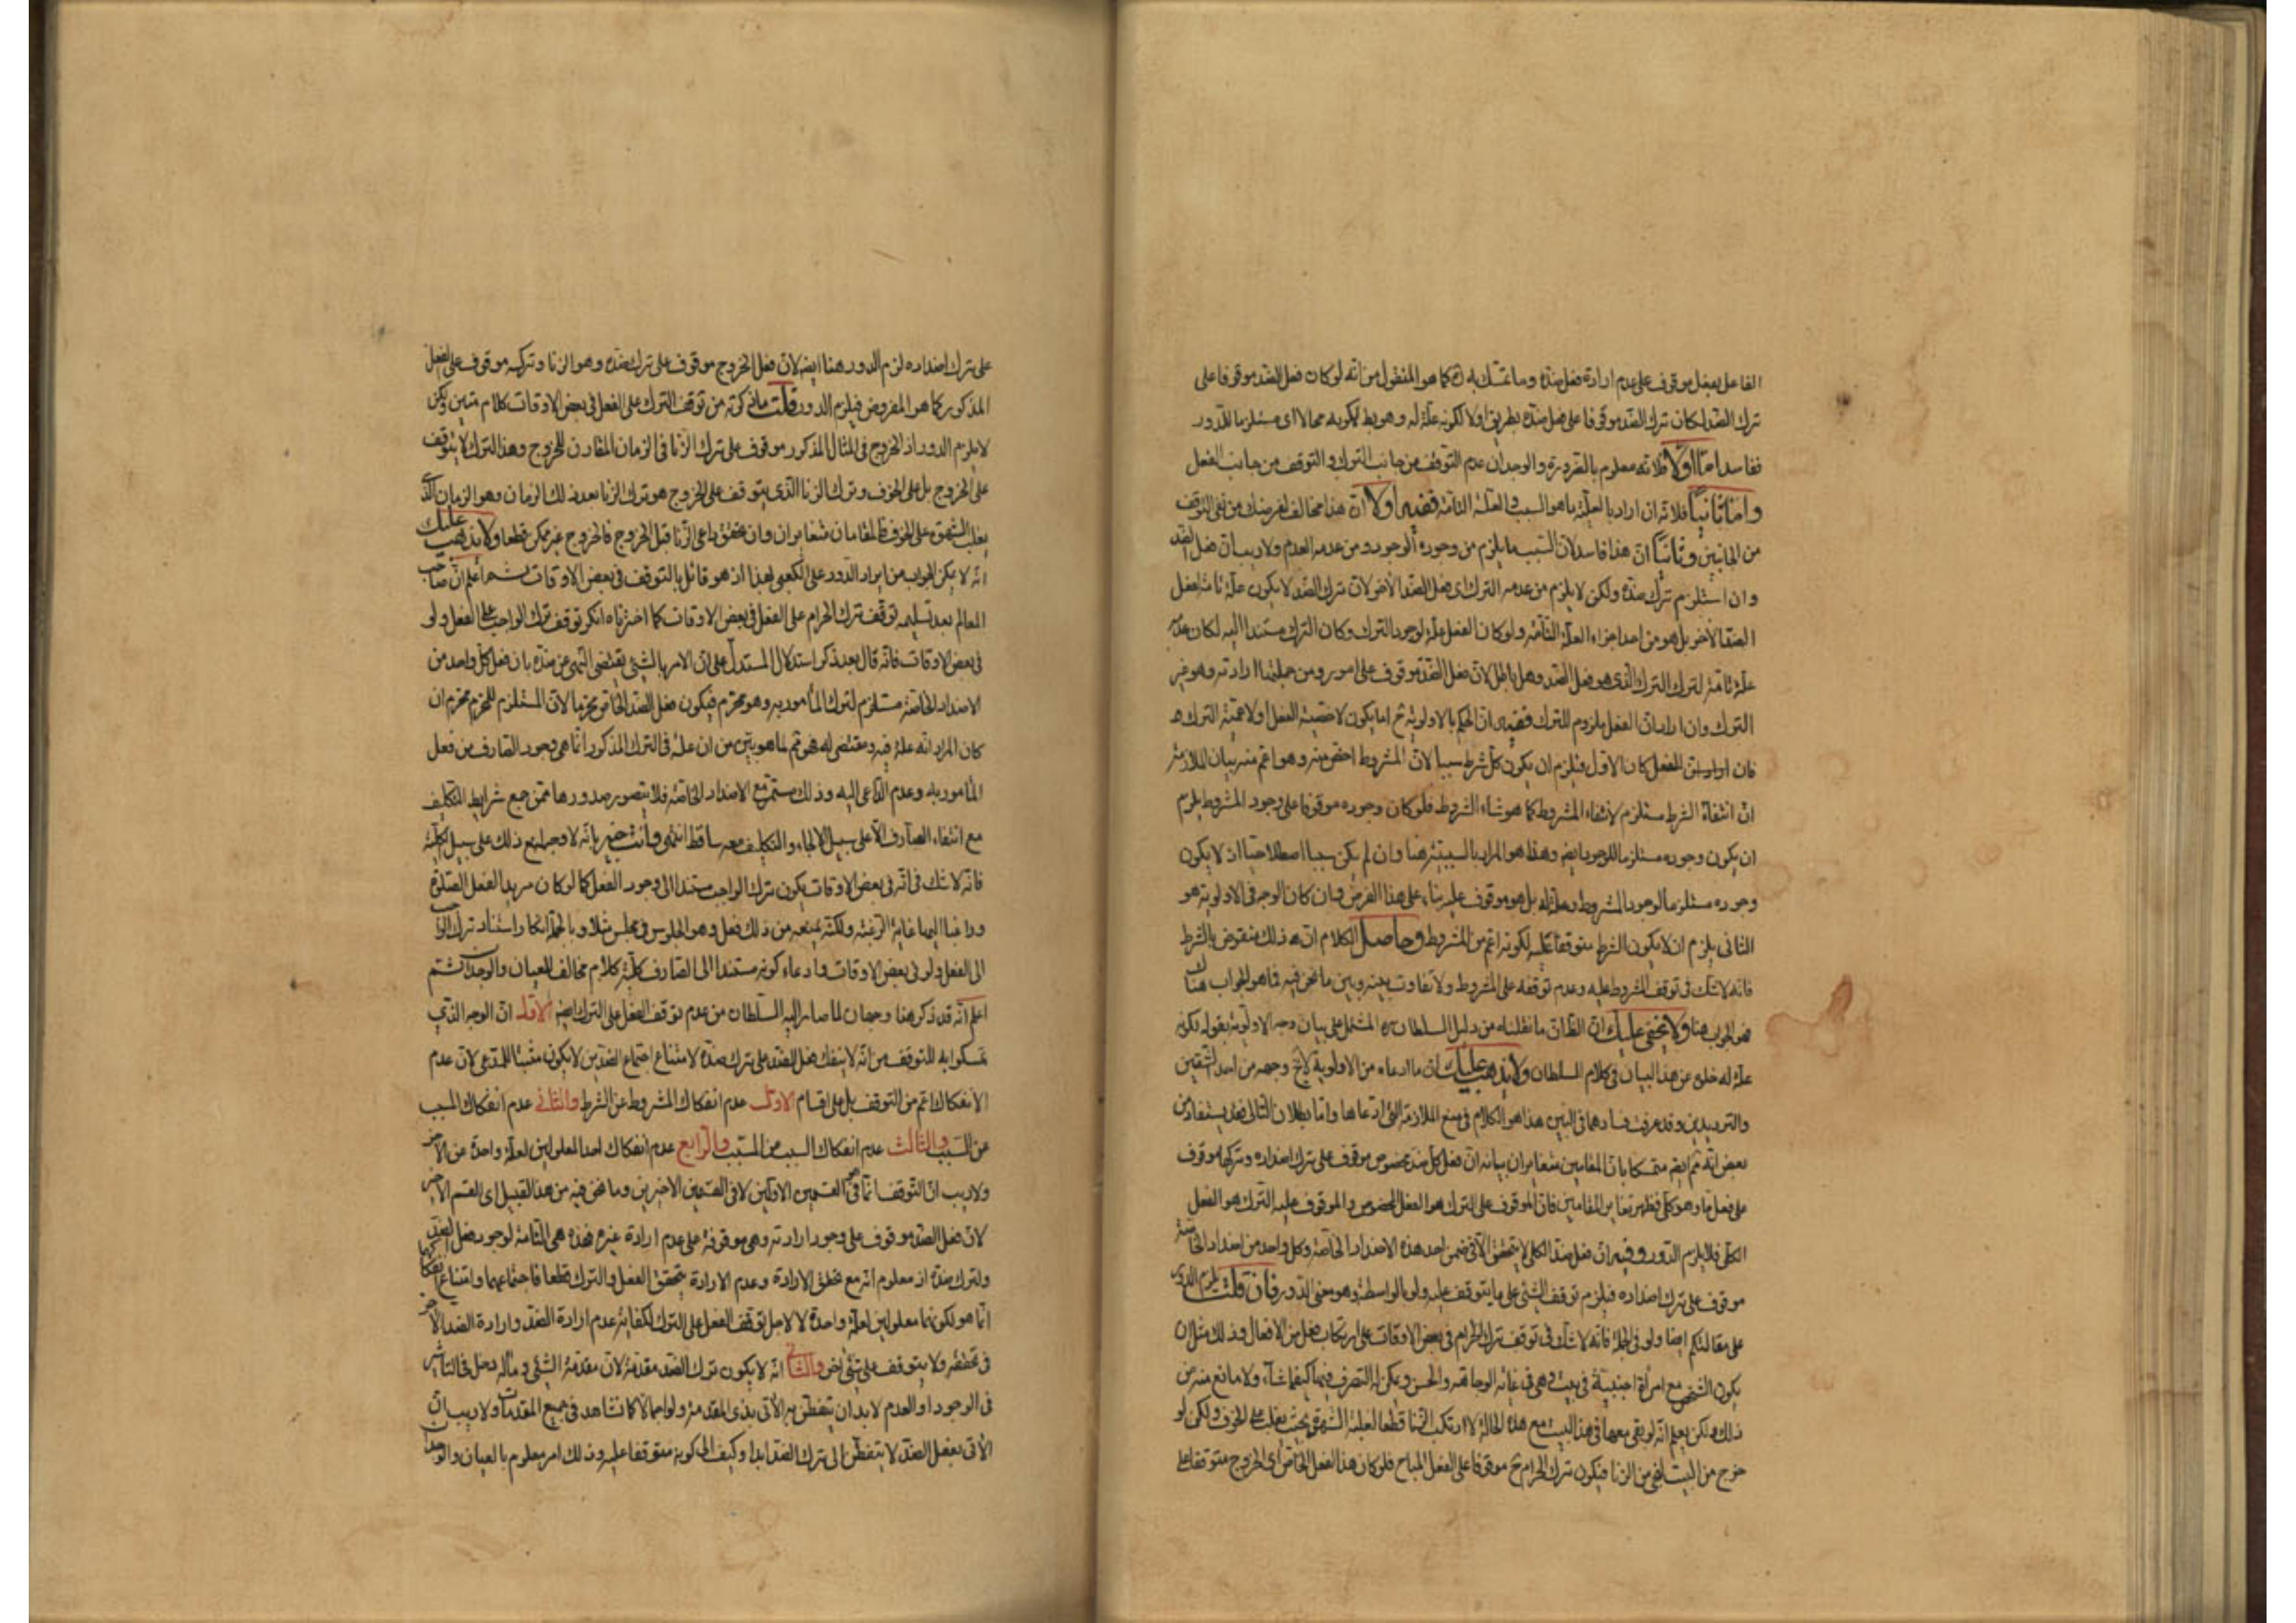 الفاعل بفعل موقوف على عدم ارادة فعل ضده وما تمسك به كما هو المنقول من انه لو كان فعل الضد موقوفا على
ترك الضد لكان ترك الضد موقوفا على فعل ضده بطريق اولا لكونه علة له وهو بط لكونه محالا اى مستلزما للدور
ففاسد اما اولا فلانه معلوم بالضرورة والوجدان عدم التوقف من جانب الترك والتوقف من جانب الفعل
واما ثانيا فلانه ان اراد بالعلية ما هو السبب والعلة التامة ففيه اولا ان هذا مخالف لغرضك من نفى التوقف
من الجانبين وثانيا ان هذا فاسد لان السبب ما يلزم من وجوده الوجود ومن عدمه العدم ولا ريب ان فعل الضد
وان استلزم ترك ضده ولكن لا يلزم من عدمه الترك اى فعل الضد الاخر لان ترك الضد لا يكون علة تامة لفعل
الضد الاخر بل هو من احد اجزاء العلة التامة ولو كان الفعل علة لوجود الترك وكان الترك مستندا اليه لكان عدمه
علة تامة لترك الترك الذى هو فعل الضد وهل باطل لان فعل الضد موقوف على امور ومن جملتها ارادته وهو غير
الترك وان اراد ان الفعل ملزوم للترك ففيه ان الحكم بالاولوية ح اما يكون لاخصية الفعل او لاعمية الترك
فان كان الاول فيلزم ان يكون كل شرط سببا لان المشروط اخص منه وهو اعم منه بيان الملازمة
ان انتفاء الشرط مستلزم لانتفاء المشروط كما هو شاء الشروط فلو كان وجوده موقوفا على وجود المشروط يلزم
ان يكون وجوده مستلزما للوجود ايضا وهذا هو المراد بالسببية هنا وان لم يكن سببا اصطلاحيا اذ لا يكون
وجوده مستلزما لوجود المشروط وعلة له بل هو موقوف عليه بناء على هذا الفرض وان كان الوجه فى الاولوية هو
الثانى يلزم ان لا يكون الشرط متوقفا عليه لكونه اعم من المشروط وحاصل الكلام ان ذلك منقوض بالشرط
فانه لا شك فى توقف المشروط عليه وعدم توقفه على المشروط ولا تفاوت بينه وبين ما نحن فيه فما هو الجواب هناك
فهو الجواب هنا ولا يخفى عليك ان الظان ما نقلناه من دليل السلطان ره المشتمل على بيان وجه الاولوية بقوله لكونه
علة له خلى عن هذا البيان فى كلام السلطان ولا يذهب عليك ان ما ادعاه من الاولوية لا يخ وجهه من احد الشقين
والترديدين وقد عرفت فسادهما فى البين هذا هو الكلام فى منع الملازمة التى ادعاها واما بطلان التالى فقد يستفاد من
بعض انه تم ايضا متمسكا بان المقامين متغايران بيانه ان فعل كل ضد مخصوص موقوف على ترك اضداده وتركها موقوف
على فعل ما وهو كلى فظهر تغاير المقامين فان الموقوف على الترك هو الفعل المخصوص والموقوف عليه الترك هو الفعل
الكلى فلا يلزم الدور وفيه ان فعل ضد الكلى لا يتحقق الا فى ضمن احد هذه الاضداد الخاصة وكل واحد من اضداد الخاصة
موقوف على ترك اضداده فيلزم توقف الشئ على ما يتوقف عليه ولو بالواسطة وهو معنى الدور فان قلت يلزم الدور
على مقالتكم ايضا ولو فى الجملة فانه لا شك فى توقف ترك الحرام فى بعض الاوقات على ارتكاب فعل من الافعال وذلك مثل ان
يكون الشخص مع امرأة اجنبية فى بيت وهى فى غاية الوجاهة والحسن ويمكن له التصرف فيها كيفما شاء ولا مانع منه من
ذلك ولكن يعلم انه لو بقى معها فى هذا البيت مع هذه الحالة لارتكب الزنا قطعا لغلبة الشهوة بحيث يغلب على الخوف ولكن لو
خرج من البيت لنجى من الزنا فيكون ترك الحرام ح موقوفا على الفعل المباح فلو كان هذا الفعل الخاص اى الخروج متوقفا على
على ترك اضداده لزم الدور هنا ايضا لان فعل الخروج موقوف على ترك ضده وهو الزنا وتركه موقوف على الفعل
المذكور كما هو المفروض فيلزم الدور قلت ما ذكرته من توقف الترك على الفعل فى بعض الاوقات كلام متين ولكن
لا يلزم الدور اذ الخروج فى المثال المذكور موقوف على ترك الزنا فى الزمان المقارن للخروج وهذا الترك لا يتوقف
على الخروج بل على الخوف وترك الزنا الذى يتوقف على الخروج هو ترك الزنا بعد ذلك الزمان وهو الزمان الذى
يغلب الشهوة على الخوف فالمقامان متغايران وان تحقق داعى الزنا قبل الخروج فالخروج غير ممكن قطعا ولا يذهب عليك
انه لا يمكن الجواب من ايراد الدور على الكعبى بهذا اذ هو قائل بالتوقف فى بعض الاوقات ثم اعلم ان صاحب
المعالم بعد تسليمه توقف ترك الحرام على الفعل فى بعض الاوقات كما اخترناه انكر توقف ترك الواجب على الفعل ولو
فى بعض الاوقات فانه قال بعد ذكر استدلال المستدل على ان الامر بالشئ يقتضى النهى عن ضده بان فعل كل واحد من
الاضداد الخاصة مستلزم لترك المأمور به وهو محرم فيكون فعل الضد الخاص محرما لان المستلزم للمحرم محرم ان
كان المراد انه علة فيه ومقتضى له فهو تم لما هو بين من ان علة فى الترك المذكور انما هى وجود الصارف من فعل
المأمور به وعدم الداعى اليه وذلك مستمر مع الاضداد الخاصة فلا يتصور صدورها ممن جمع شرايط التكليف
مع انتفاء الصارف الا على سبيل الالجاء والتكليف معه ساقط انتهى وانت خبير بانه لا وجه لمنع ذلك على سبيل الكلية
فانه لا شك فى انه فى بعض الاوقات يكون ترك الواجب مستندا الى وجود الفعل كما لو كان مريدا لفعل الصلوة
وراغبا اليها غاية الرغبة ولكنه يمنعه من ذلك فعل وهو الجلوس فى مجلس مثلا وبالجملة انكار استناد ترك الواجب
الى الفعل ولو فى بعض الاوقات وادعاء كونه مستندا الى الصارف كلية كلام مخالف للعيان والوجدان ثم
اعلم انه قد ذكر هنا وجهان لما صار اليه السلطان من عدم توقف الفعل على الترك ايضا الاول ان الوجه الذى
تمسكوا به للتوقف من انه لا ينفك فعل الضد على ترك ضده لامتناع اجتماع الضدين لا يكون مثبتا للمدعى لان عدم
الانفكاك اعم من التوقف بل على اقسام الاول عدم انفكاك المشروط عن الشرط والثانى عدم انفكاك المسبب
عن السبب والثالث عدم انفكاك السبب من المسبب والرابع عدم انفكاك احد المعلولين لعلة واحدة عن الاخر
ولا ريب ان التوقف انما هو فى القسمين الاولين لا فى القسمين الاخيرين وما نحن فيه من هذا القبيل اى القسم الاخير
لان فعل الضد موقوف على وجود ارادته وهى موقوفة على عدم ارادة غيره فهذه هى التامة لوجود فعل الضد
ولترك ضده اذ معلوم انه مع تحقق الارادة وعدم الارادة يتحقق الفعل والترك قطعا فاجتماعهما وامتناع انفكاكهما
انما هو لكونهما معلولين لعلة واحدة لا لاجل توقف الفعل على الترك لكفاية عدم ارادة الضد وارادة الضد الاخر
فى تحققه ولا يتوقف على شئ اخر والثانى انه لا يكون ترك الضد مقدمة لان مقدمة الشئ وماله دخل فى التاثير
فى الوجود او العدم لابد ان يتفطن به الاتى بذى المقدمة ولو اجمالا كما نشاهد فى جميع المقدمات ولا ريب ان
الاتى بفعل الضد لا يتفطن الى ترك الضد ابدا وكيف الى كونه متوقفا عليه وذلك امر معلوم بالعيان والوجدان